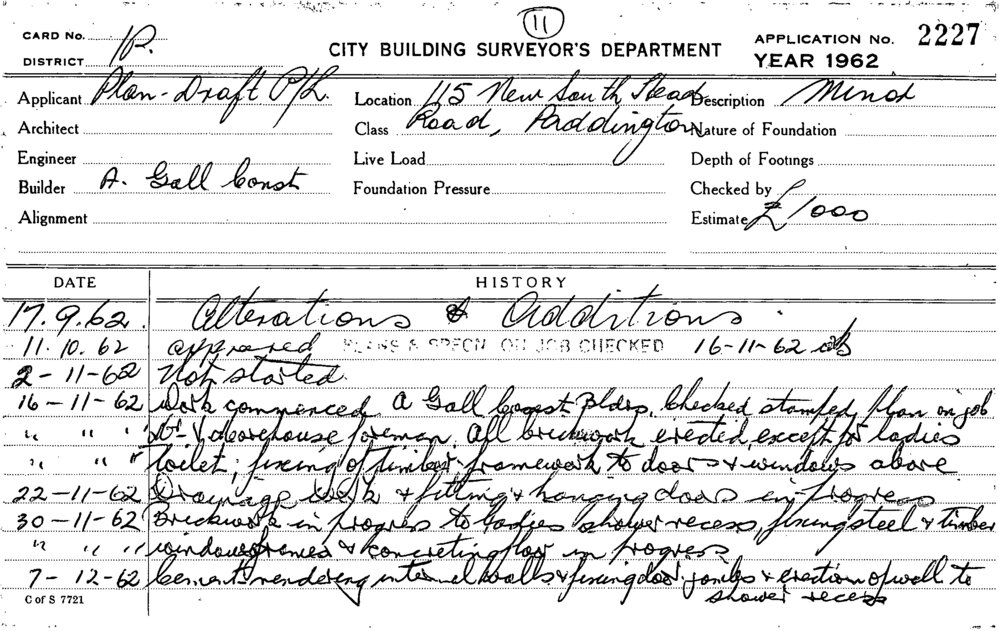 11
CARD No.
DISTRICT P.
CITY BUILDING SURVEYOR'S DEPARTMENT
APPLICATION No. 2227
YEAR 1962
Applicant Plan-Draft P/L.
Location 115 New South Head
Road, Paddington
Description Minor
Architect
Class
Nature of Foundation
Engineer
Live Load
Depth of Footings
Builder A. Gall Const
Foundation Pressure
Checked by
Alignment
Estimate £1000
DATE HISTORY
17.9.62. Alterations & Additions.
11.10.62 approved PLANS & SPECN ON JOB CHECKED 16-11-62
2-11-62 Not started.
16-11-62 Work commenced A Gall Const Bldrs. Checked stamped plan on job
" " " foreman. All brickwork erected except for ladies
" " " toilet, fixing of timber framework to doors & windows above
22-11-62 Drainage work & fitting & hanging doors in progress
30-11-62 Brickwork in progress to ladies shower recess, fixing steel & timber
" " " windowframes & concreting floor in progress
7-12-62 Cement rendering internal walls & fixing door jambs & erection of wall to
shower recess
C of S 7721